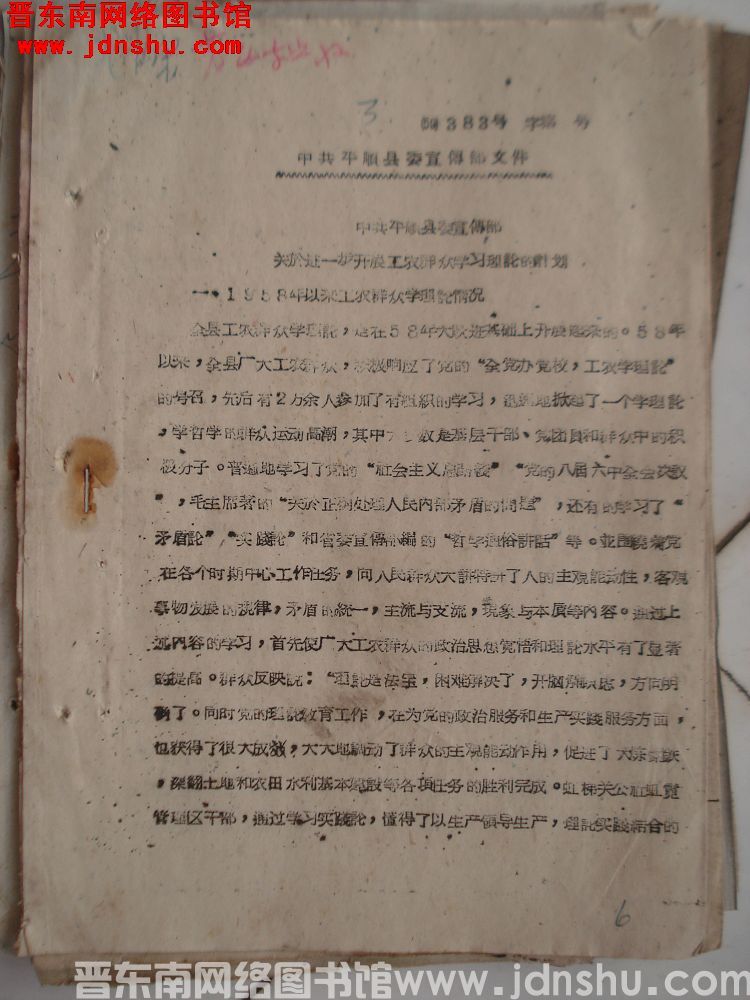 晋东南网络图书馆
www.jdnshu.com
3
383号 字第 号
中共平顺县委宣傳部文件
中共平顺县委宣傳部
关於进一步开展工农群众学习理論的計划
一、1958年以来工农群众学理論情况
全县工农群众学理論，是在58年大跃进基础上开展起来的。58年
以来，全县广大工农群众，积极响应了党的“全党办党校，工农学理論”
的号召，先后有2万余人参加了有組织的学习，掀起了一个学理論
，学哲学的群众运动高潮，其中大多数是基层干部、党团員和群众中的积
极分子。普遍地学习了党的“社会主义总路綫”“党的八届六中全会决議
”，毛主席著的“关於正确处理人民内部矛盾的問題”，还有的学习了“
矛盾論”，“实践論”和省委宣傳部編的“哲学通俗讲話”等。並围繞着党
在各个时期中心工作任务，向人民群众大讲特讲了人的主观能动性，客观
事物发展的规律，矛盾的統一，主流与支流，現象与本质等内容。通过上
述内容的学习，首先使广大工农群众的政治思想觉悟和理論水平有了显著
的提高。群众反映說：“理論是法宝，困难解决了，开脑解顾虑，方向明
确了。同时党的理論教育工作，在为党的政治服务和生产实践服务方面，
也获得了很大成效，大大地調动了群众的主观能动作用，促进了大炼鋼铁
，深翻土地和农田水利基本建設等各項任务的胜利完成。虹梯关公社虹霓
管理区干部，通过学习实践論，懂得了以生产领导生产，理論实践結合的
6
晋东南网络图书馆 www.jdnshu.com